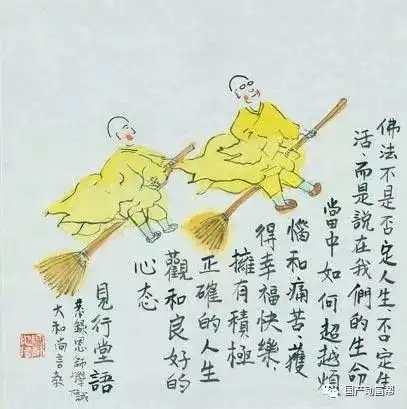 佛法不是否定人生、否定生
活、而是說在我們的生命
當中如何超越煩
惱和痛苦、獲
得幸福快樂、
擁有積極
正確的人生
觀和良好的
心态
見行堂語
恭錄恩師學誠
大和尚言教
国产动画帮